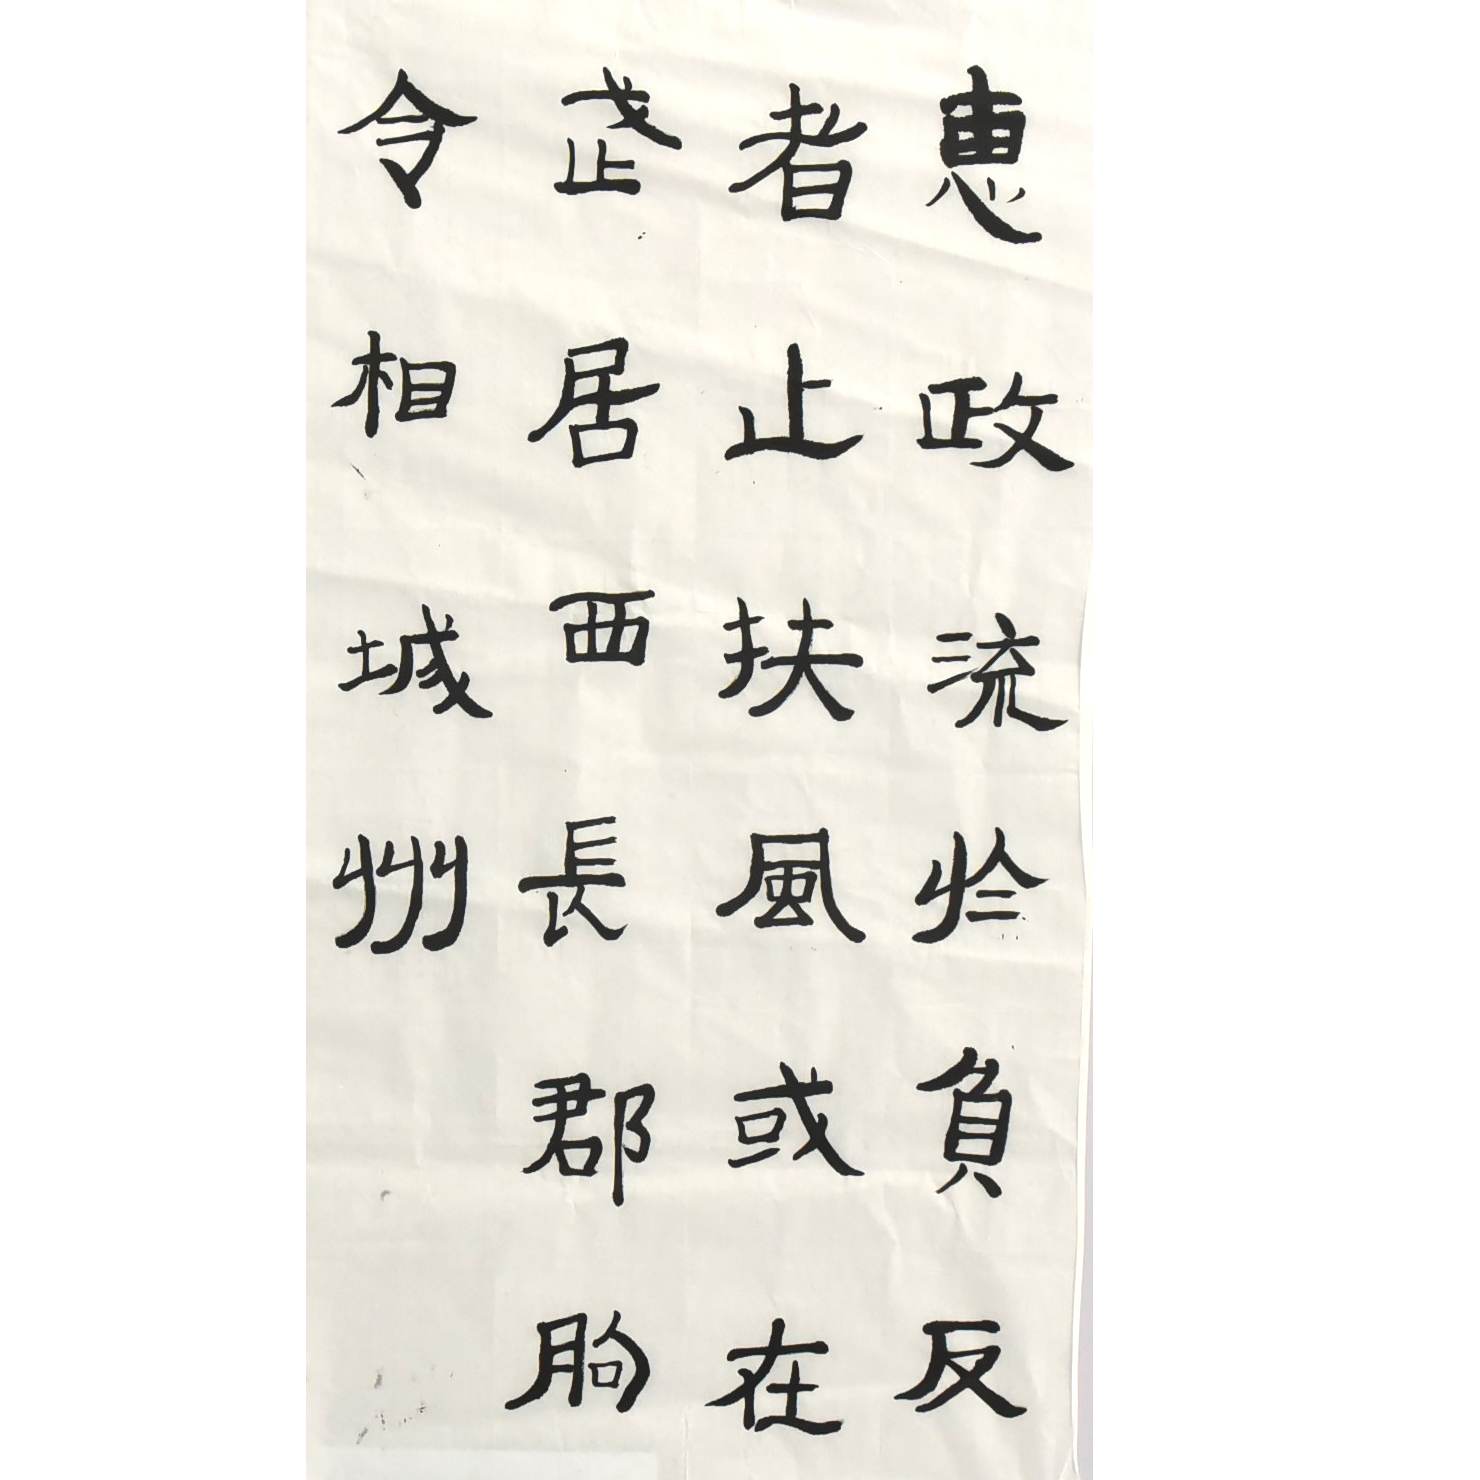 惠政流於負反
者止扶風或在
武居西長郡朐
令相城州